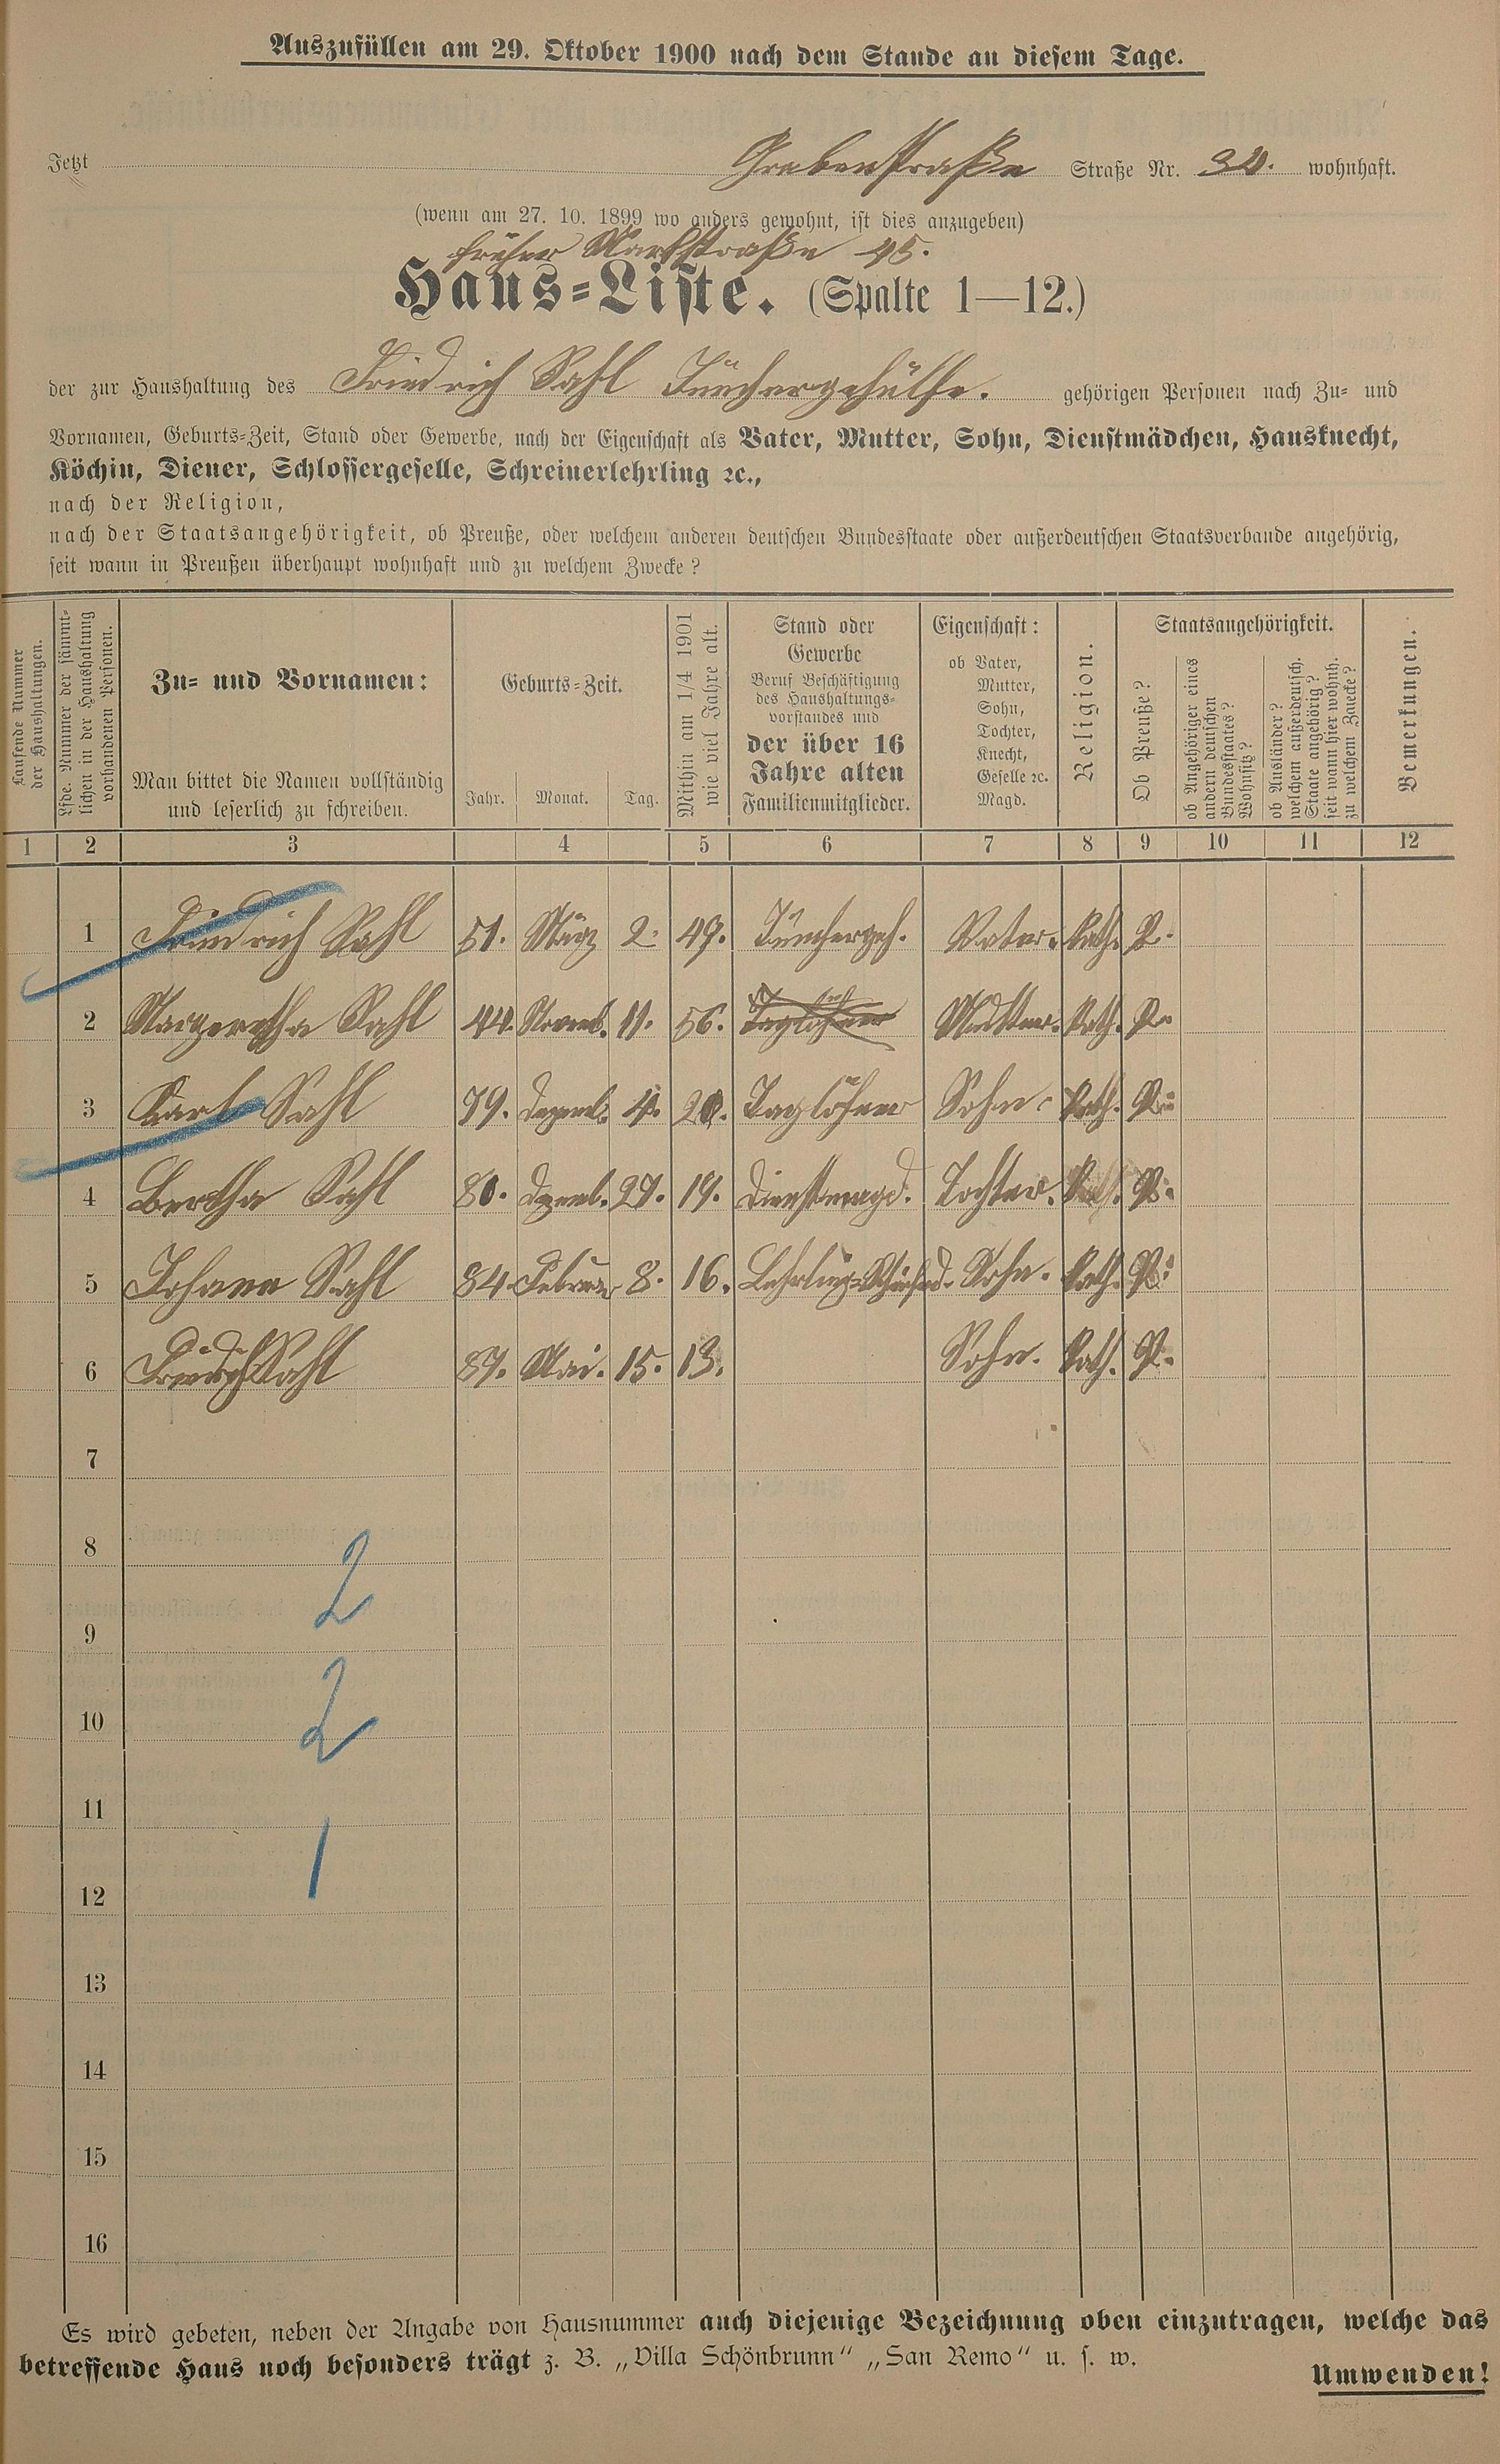 Auszufüllen am 29. Oktober 1900 nach dem Stande an diesem Tage.
Jetzt Grabenstraße Straße Nr. 30. wohnhaft.
(wenn am 27. 10. 1899 wo anders gewohnt, ist dies anzugeben)
früher Marktstraße 45.
Haus-Liste. (Spalte 1—12.)
der zur Haushaltung des Friedrich Sahl Tünchergehülfe. gehörigen Personen nach Zu- und
Vornamen, Geburts-Zeit, Stand oder Gewerbe, nach der Eigenschaft als Vater, Mutter, Sohn, Dienstmädchen, Hausknecht,
Köchin, Diener, Schlossergeselle, Schreinerlehrling ꝛc.,
nach der Religion,
nach der Staatsangehörigkeit, ob Preuße, oder welchem anderen deutschen Bundesstaate oder außerdeutschen Staatsverbande angehörig,
seit wann in Preußen überhaupt wohnhaft und zu welchem Zwecke?
Laufende Nummer
der Haushaltungen.
Lfde. Nummer der sämmt-
lichen in der Haushaltung
vorhandenen Personen.
Zu- und Vornamen:
Man bittet die Namen vollständig
und leserlich zu schreiben.
Geburts-Zeit.
Jahr. Monat. Tag.
Mithin am 1/4 1901
wie viel Jahre alt.
Stand oder
Gewerbe
Beruf Beschäftigung
des Haushaltungs-
vorstandes und
der über 16
Jahre alten
Familienmitglieder.
Eigenschaft:
ob Vater,
Mutter,
Sohn,
Tochter,
Knecht,
Geselle ꝛc.
Magd.
Religion.
Staatsangehörigkeit.
Ob Preuße?
ob Angehöriger eines
andern deutschen
Bundesstaates?
Wohnsitz?
ob Ausländer?
welchem außerdeutsch.
Staate angehörig?
seit wann hier wohnh.
zu welchem Zwecke?
Bemerkungen.
1 2 3 4 5 6 7 8 9 10 11 12
1 Friedrich Sahl 51. März 2. 49. Tünchergeh. Vater. Kath. P.
2 Margeretha Sahl 44. Novemb. 11. 56. Taglöhner Mutter. Kath. P.
3 Karl Sahl 79. Dezemb. 4. 20. Taglöhner Sohn. Kath. P.
4 Bertha Sahl 80. Dezemb. 27. 19. Dienstmagd. Tochter. Kath. P.
5 Johann Sahl 84. Februar 8. 16. Lehrling Sohn. Kath. P.
6 Friedrich Sahl 87. Mai. 15. 13. Sohn. Kath. P.
7
8
2
9
10
2
11
12
1
13
14
15
16
Es wird gebeten, neben der Angabe von Hausnummer auch diejenige Bezeichnung oben einzutragen, welche das
betreffende Haus noch besonders trägt z. B. „Villa Schönbrunn“ „San Remo“ u. s. w.
Umwenden!